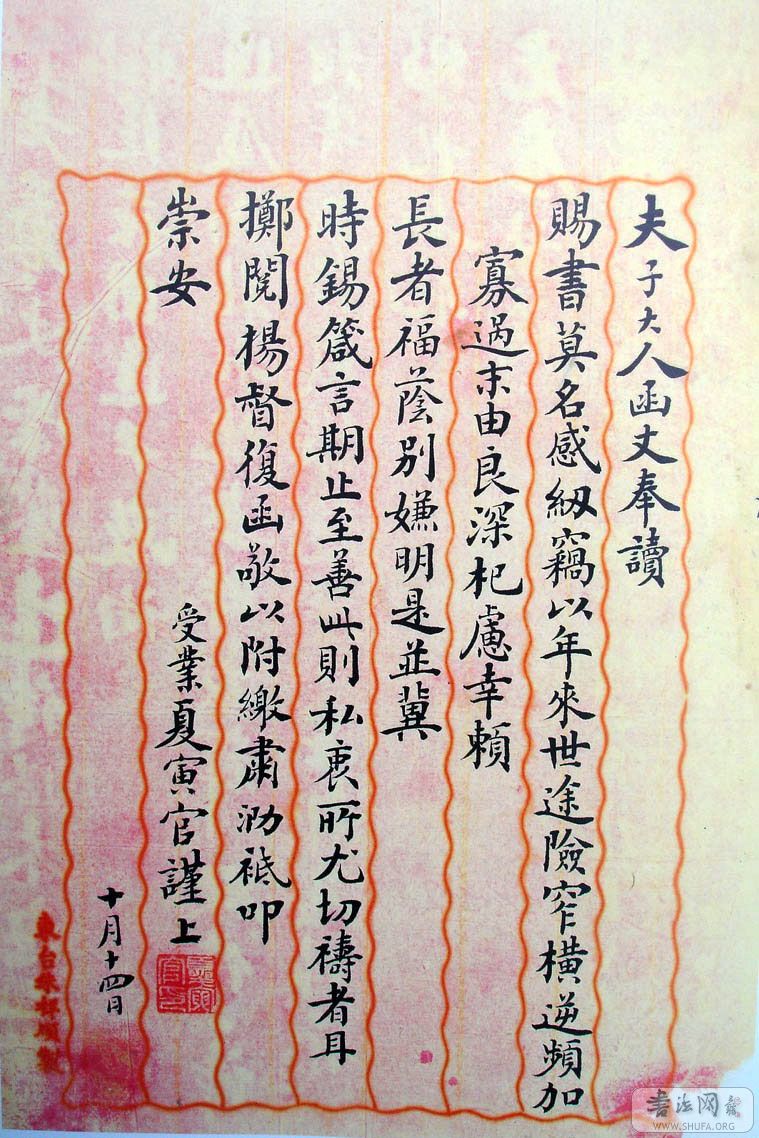 夫子大人函丈奉讀
賜書莫名感紉竊以年來世途險窄橫逆頻加
寡過末由良深杞慮幸賴
長者福蔭別嫌明是並冀
時錫箴言期止至善此則私衷所尤切禱者耳
擲閱楊督復函敬以附繳肅泐祗叩
崇安
受業夏寅官謹上
十月十四日
書法网
WWW.SHUFA.ORG